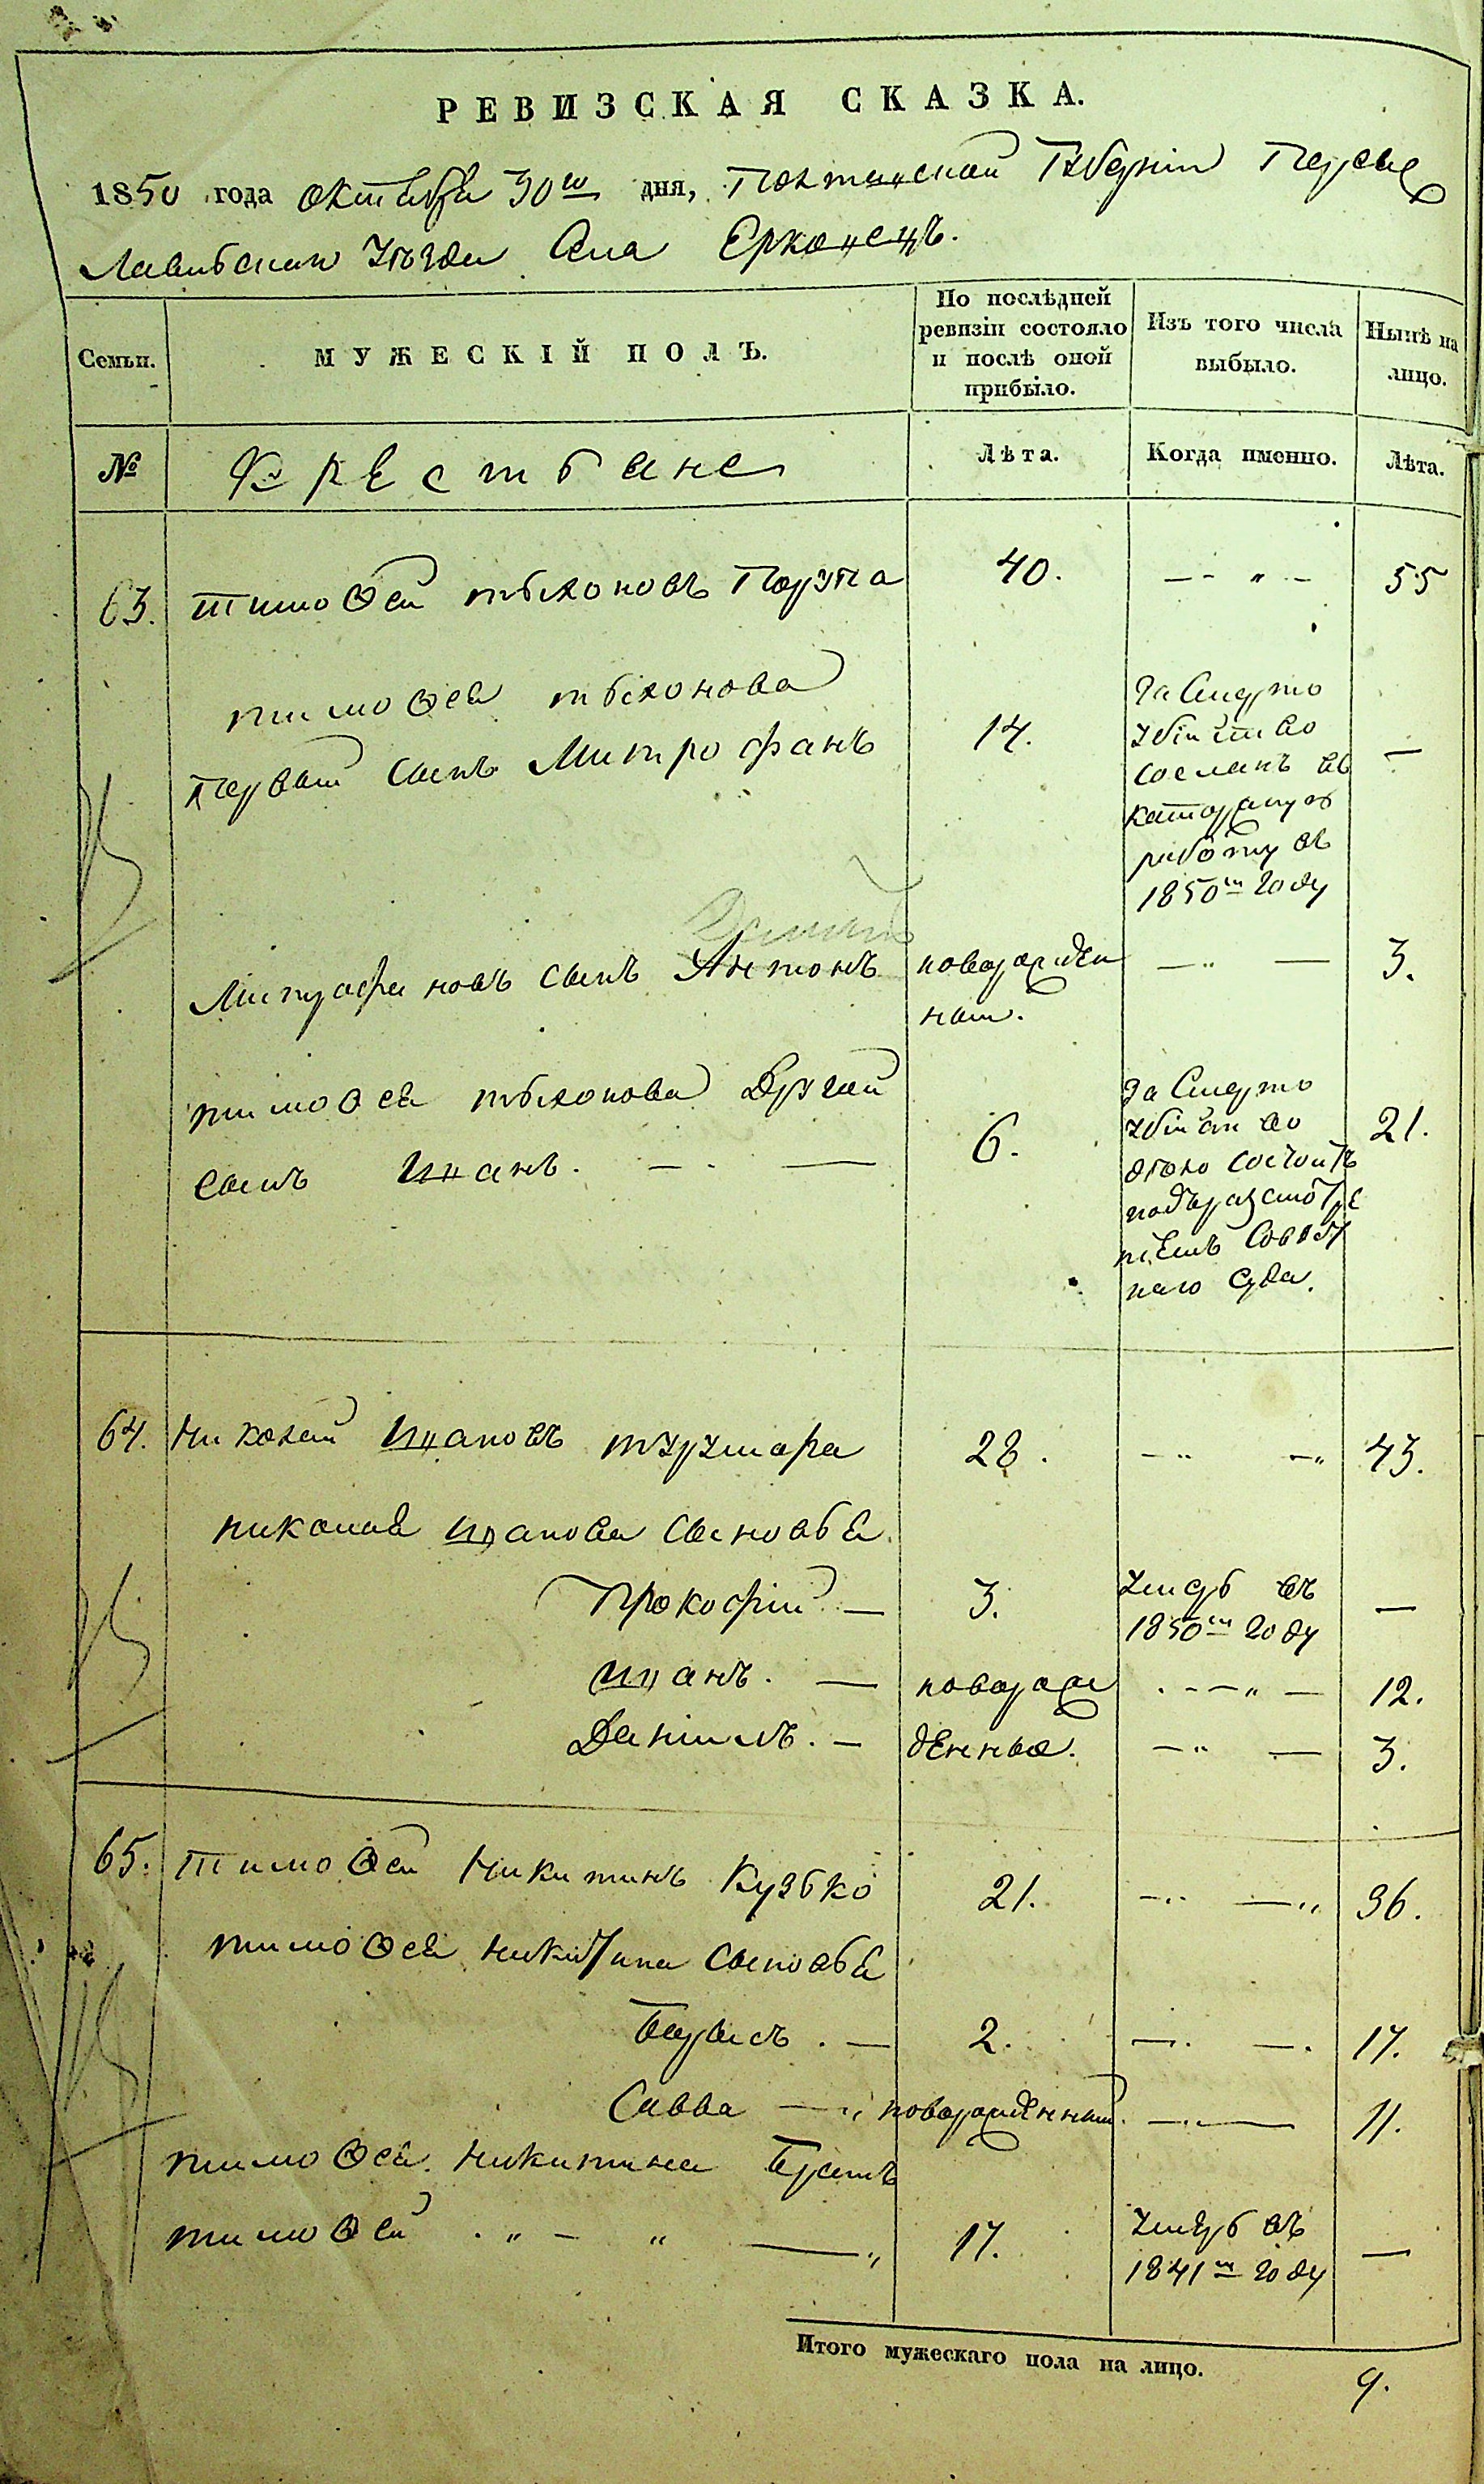 РЕВИЗСКАЯ СКАЗКА.
1850 года октября 30го дня, Полтавской Губерніи Переяс
лавскаго Уѣзда Села Ерковецъ.
Семьи.
МУЖЕСКІЙ ПОЛЪ.
По послѣдней ревизіи состояло и послѣ оной прибыло.
Изъ того числа выбыло.
Нынѣ на лицо.
№
Крестьяне
Лѣта.
Когда именно.
Лѣта.
63. Тимоѳей Тихоновъ 40. — „ — 55
Тимоѳея Тихонова
первый сынъ Митрофанъ 14. —
за смерто
убійство
сосланъ въ
каторжную
работу въ
1850м году
Данило
Митрофановъ сынъ Антонъ новорожден — „ — 3.
ный.
Тимоѳея Тихонова другой
сынъ Иванъ. — . — 6. 21.
за смерто
убійство
состоитъ
подъ разсмотре
ніемъ Совѣст
наго Суда.
64. Николай Ивановъ 28. — „ — „ 43.
Николая Иванова сыновья
Прокофій — 3. умеръ въ —
1850м году
Иванъ. — новорож . - — „ — 12.
Даніилъ. — денные. — „ — 3.
65. Тимоѳей Никитинъ Кузько 21. — „ — „ 36.
Тимоѳея Никитина сыновья
Борисъ . — 2. — . — . 17.
Савва — „ новорожденный. — „ — 11.
Тимоѳея Никитина братъ
Тимоѳей . „ — „ — „ 17. умеръ въ —
1841м году
Итого мужескаго пола на лицо. 9.